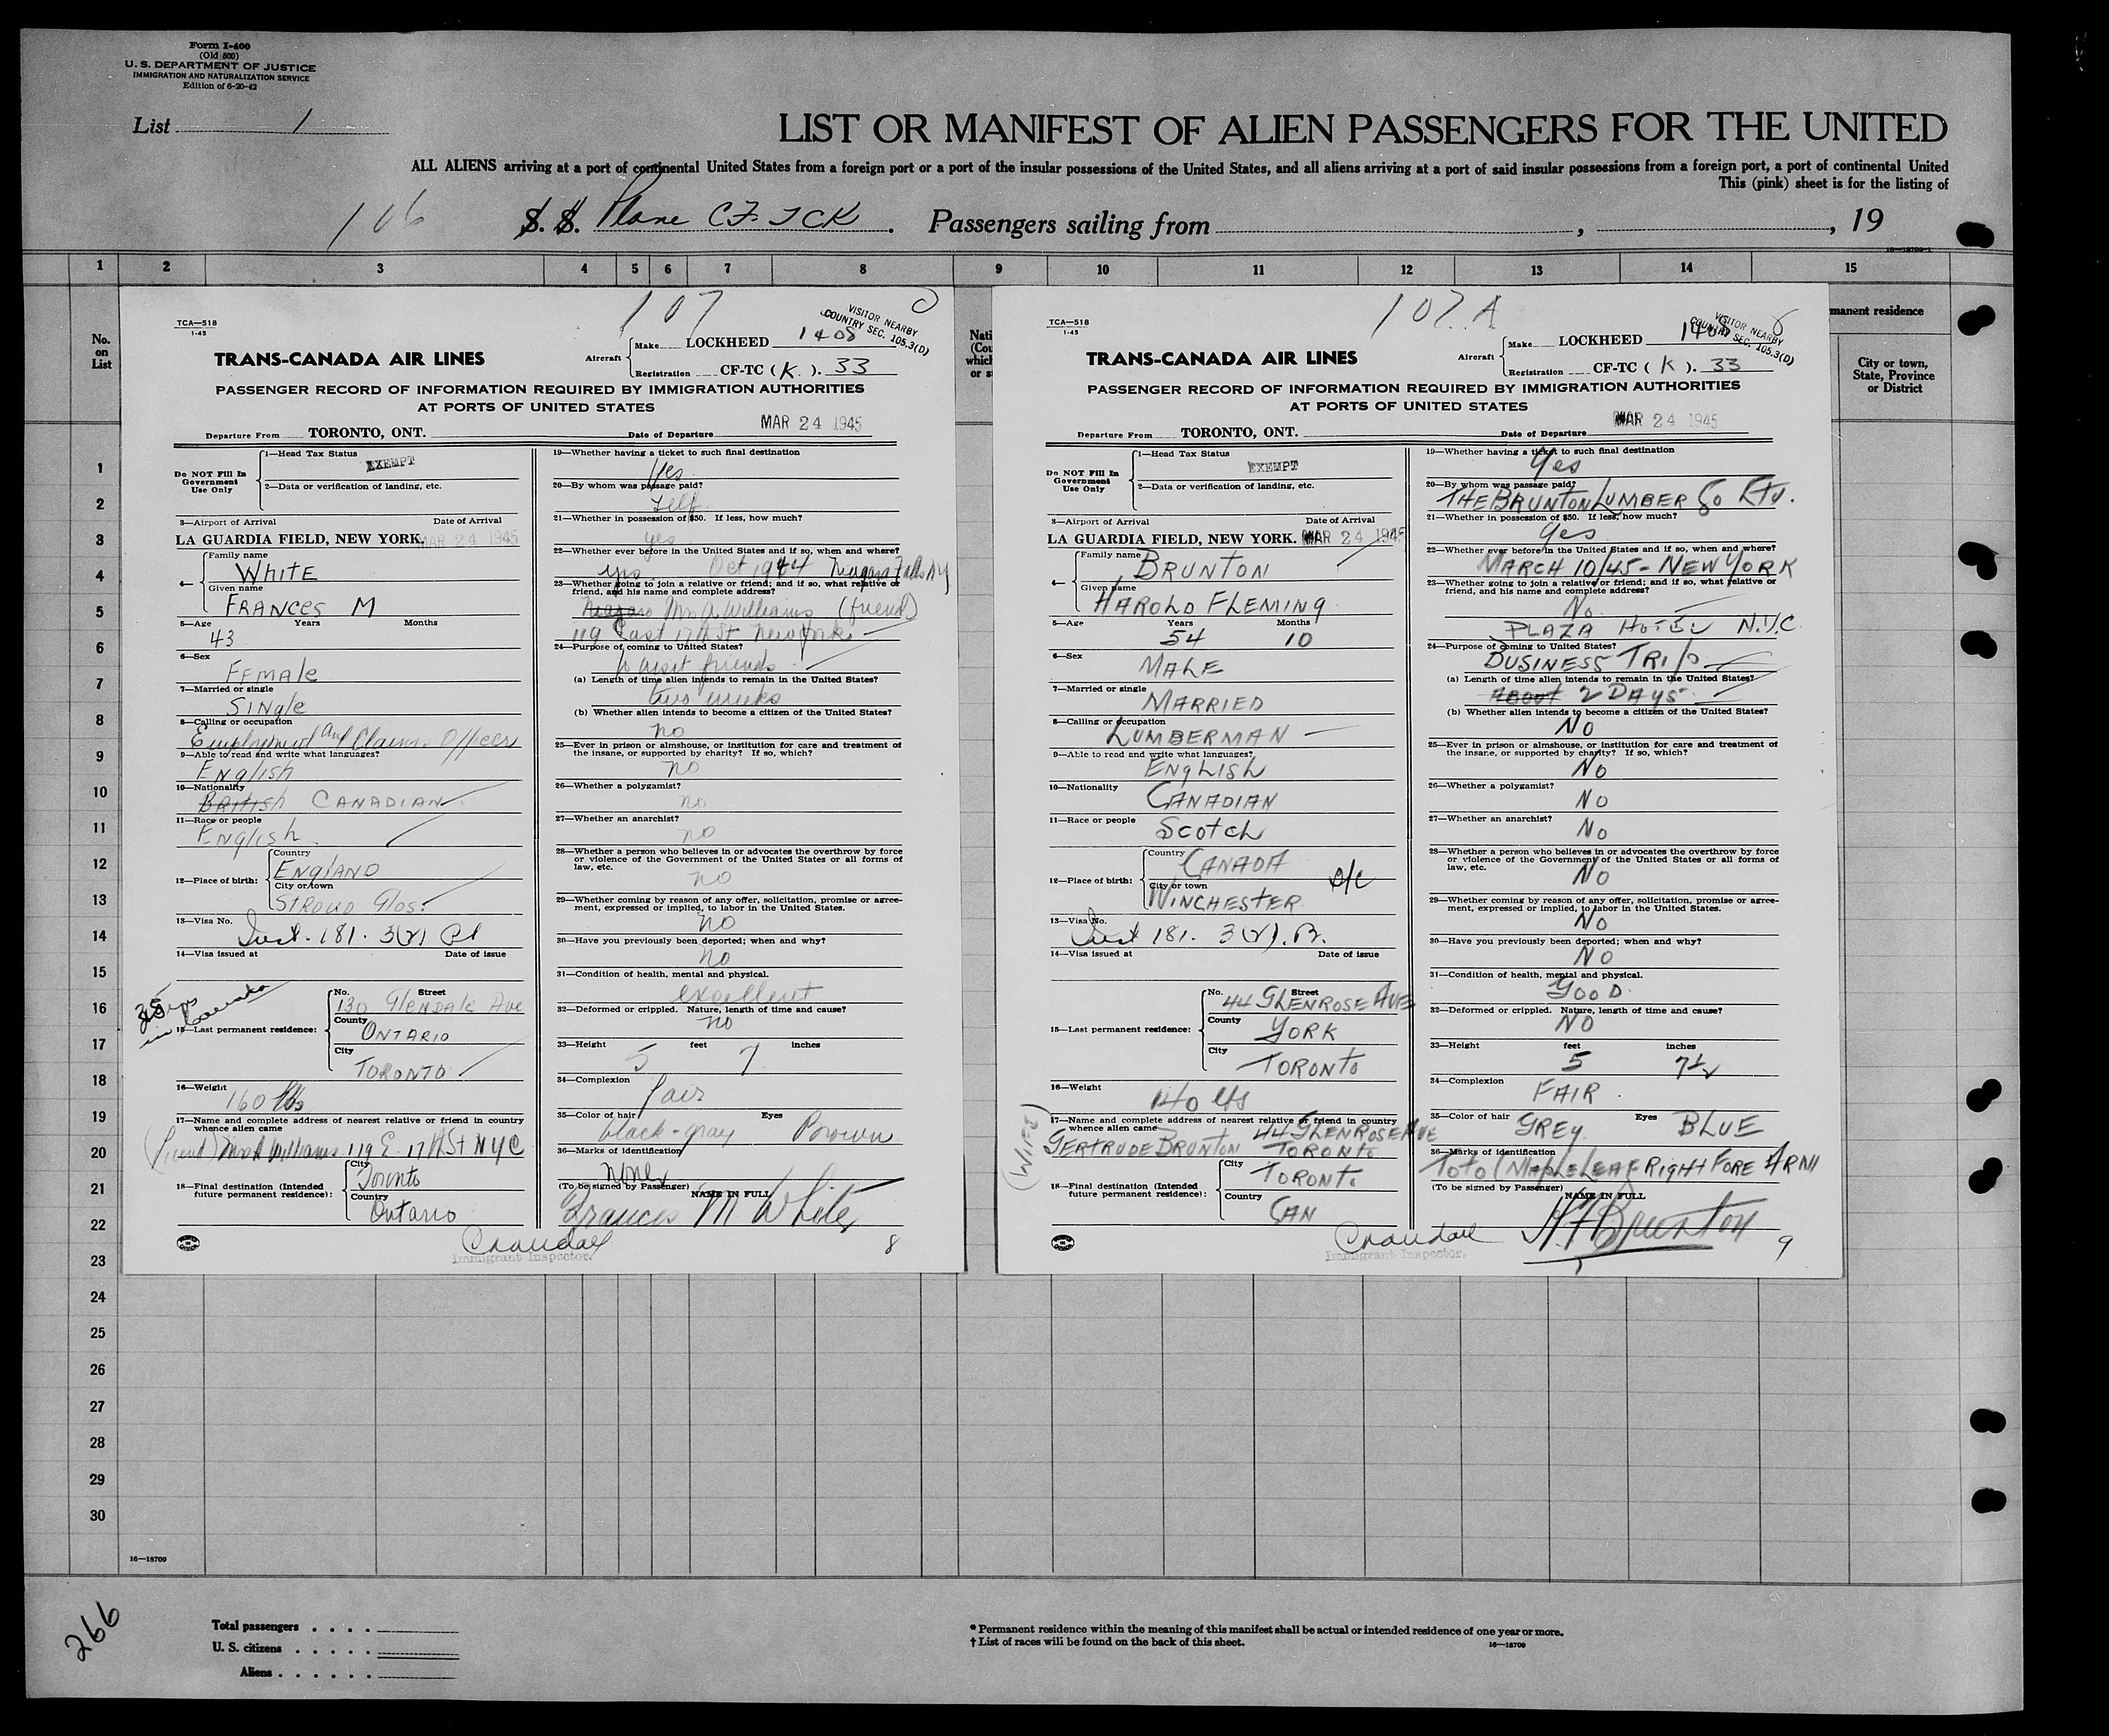 Form I-400
(Old 500)
U. S. DEPARTMENT OF JUSTICE
IMMIGRATION AND NATURALIZATION SERVICE
Edition of 6-20-42
List 1
LIST OR MANIFEST OF ALIEN PASSENGERS FOR THE UNITED
ALL ALIENS arriving at a port of continental United States from a foreign port or a port of the insular possessions of the United States, and all aliens arriving at a port of said insular possessions from a foreign port, a port of continental United
This (pink) sheet is for the listing of
106 S. S. Plane CF-TCK. Passengers sailing from , , 19
1 2 3 4 5 6 7 8 9 10 11 12 13 14 15
No. on List
manent residence
City or town, State, Province or District
107
VISITOR NEARBY
COUNTRY SEC. 105.3(D)
TCA—518
1-45
TRANS-CANADA AIR LINES
Aircraft
Make LOCKHEED 1408
Registration CF-TC (K). 33
PASSENGER RECORD OF INFORMATION REQUIRED BY IMMIGRATION AUTHORITIES
AT PORTS OF UNITED STATES
Departure From TORONTO, ONT. Date of Departure MAR 24 1945
Do NOT Fill In
Government
Use Only
1—Head Tax Status EXEMPT
2—Data or verification of landing, etc.
3—Airport of Arrival Date of Arrival
LA GUARDIA FIELD, NEW YORK. MAR 24 1945
4— Family name WHITE
Given name FRANCES M
5—Age Years Months
43
6—Sex
FEMALE
7—Married or single
SINGLE
8—Calling or occupation
Employment and Claims Officer
9—Able to read and write what languages?
ENGLISH
10—Nationality
British CANADIAN
11—Race or people
ENGLISH
12—Place of birth: Country ENGLAND
City or town STROUD Glos.
13—Visa No.
Inst. 181. 3(2)
14—Visa issued at Date of issue
yrs in Canada
15—Last permanent residence: No. Street 130 Glendale Ave
County ONTARIO
City TORONTO
16—Weight
160 lbs
17—Name and complete address of nearest relative or friend in country
whence alien came
(friend) Williams 119 E. 17th St NYC
18—Final destination (Intended
future permanent residence):
City Toronto
Country Ontario
19—Whether having a ticket to such final destination
Yes
20—By whom was passage paid?
Self
21—Whether in possession of $50. If less, how much?
yes
22—Whether ever before in the United States and if so, when and where?
yes Oct 1944 Niagara Falls NY
23—Whether going to join a relative or friend; and if so, what relative or
friend, and his name and complete address?
A Williams (friend)
119 East 17th St New York
24—Purpose of coming to United States?
to visit friends
(a) Length of time alien intends to remain in the United States?
two weeks
(b) Whether alien intends to become a citizen of the United States?
no
25—Ever in prison or almshouse, or institution for care and treatment of
the insane, or supported by charity? If so, which?
no
26—Whether a polygamist?
no
27—Whether an anarchist?
no
28—Whether a person who believes in or advocates the overthrow by force
or violence of the Government of the United States or all forms of
law, etc.
no
29—Whether coming by reason of any offer, solicitation, promise or agree-
ment, expressed or implied, to labor in the United States.
no
30—Have you previously been deported; when and why?
no
31—Condition of health, mental and physical.
excellent
32—Deformed or crippled. Nature, length of time and cause?
no
33—Height 5 feet 7 inches
34—Complexion
fair
35—Color of hair Eyes
black-gray Brown
36—Marks of identification
none
(To be signed by Passenger) NAME IN FULL
Frances M White
Crandall
Immigrant Inspector.
8
107 A
VISITOR NEARBY
COUNTRY SEC. 105.3(D)
TCA—518
1-45
TRANS-CANADA AIR LINES
Aircraft
Make LOCKHEED 1408
Registration CF-TC (K). 33
PASSENGER RECORD OF INFORMATION REQUIRED BY IMMIGRATION AUTHORITIES
AT PORTS OF UNITED STATES
Departure From TORONTO, ONT. Date of Departure MAR 24 1945
Do NOT Fill In
Government
Use Only
1—Head Tax Status EXEMPT
2—Data or verification of landing, etc.
3—Airport of Arrival Date of Arrival
LA GUARDIA FIELD, NEW YORK. MAR 24 1945
4— Family name BRUNTON
Given name HAROLD FLEMING
5—Age Years Months
54 10
6—Sex
MALE
7—Married or single
MARRIED
8—Calling or occupation
LUMBERMAN
9—Able to read and write what languages?
ENGLISH
10—Nationality
CANADIAN
11—Race or people
SCOTCH
12—Place of birth: Country CANADA
City or town WINCHESTER
13—Visa No.
Inst 181. 3(2). B.
14—Visa issued at Date of issue
15—Last permanent residence: No. Street 44 GLENROSE AVE
County YORK
City TORONTO
16—Weight
140 lbs
17—Name and complete address of nearest relative or friend in country
whence alien came
(WIFE) GERTRUDE BRUNTON 44 GLENROSE AVE
TORONTO
18—Final destination (Intended
future permanent residence):
City TORONTO
Country CAN
19—Whether having a ticket to such final destination
Yes
20—By whom was passage paid?
THE BRUNTON LUMBER Co LTD.
21—Whether in possession of $50. If less, how much?
Yes
22—Whether ever before in the United States and if so, when and where?
MARCH 10/45 - NEW YORK
23—Whether going to join a relative or friend; and if so, what relative or
friend, and his name and complete address?
No
PLAZA HOTEL N.Y.C.
24—Purpose of coming to United States?
BUSINESS TRIP
(a) Length of time alien intends to remain in the United States?
ABOUT 2 DAYS
(b) Whether alien intends to become a citizen of the United States?
NO
25—Ever in prison or almshouse, or institution for care and treatment of
the insane, or supported by charity? If so, which?
NO
26—Whether a polygamist?
NO
27—Whether an anarchist?
NO
28—Whether a person who believes in or advocates the overthrow by force
or violence of the Government of the United States or all forms of
law, etc.
NO
29—Whether coming by reason of any offer, solicitation, promise or agree-
ment, expressed or implied, to labor in the United States.
NO
30—Have you previously been deported; when and why?
NO
31—Condition of health, mental and physical.
GOOD
32—Deformed or crippled. Nature, length of time and cause?
NO
33—Height feet inches
5 7½
34—Complexion
FAIR
35—Color of hair GREY Eyes BLUE
36—Marks of identification
TOTO (MAPLE LEAF RIGHT FORE ARM
(To be signed by Passenger) NAME IN FULL
H F Brunton
Crandall
Immigrant Inspector.
9
1
2
3
4
5
6
7
8
9
10
11
12
13
14
15
16
17
18
19
20
21
22
23
24
25
26
27
28
29
30
16—18709
266
Total passengers . . . .
U. S. citizens . . . . .
Aliens . . . . . .
* Permanent residence within the meaning of this manifest shall be actual or intended residence of one year or more.
† List of races will be found on the back of this sheet.
16—18709